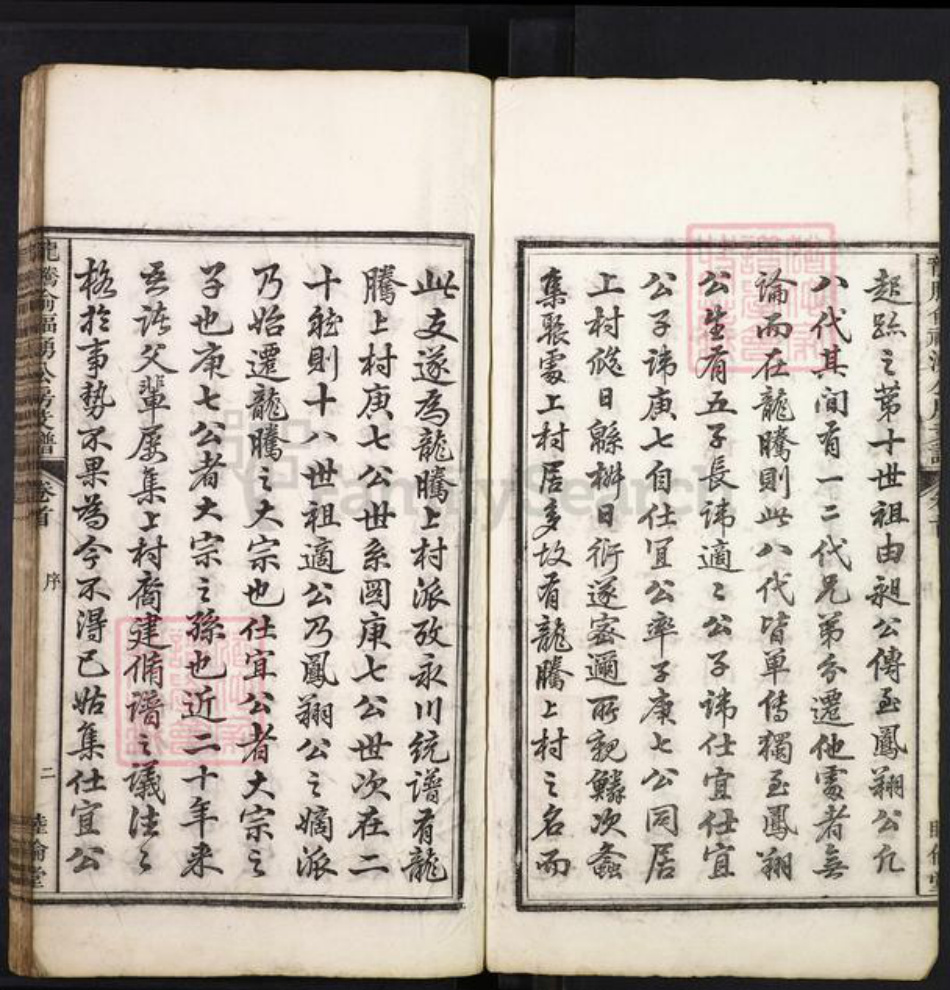 起跡之第十世祖由昶公傳至鳳翔公凡
八代其間有一二代兄弟分遷他處者無
論而在龍騰則此八代皆單傳獨至鳳翔
公生有五子長諱適二公子諱仕宜仕宜
公子諱庚七自仕宜公率子庚七公同居
上村瓞日緜椒日衍遂密邇所親鱗次螽
集聚處上村居多故有龍騰上村之名而
此支遂為龍騰上村派攷永川統譜有龍
騰上村庚七公世系圖庚七公世次在二
十餘則十八世祖適公乃鳳翔公之嫡派
乃始遷龍騰之大宗也仕宜公者大宗之
子也庚七公者大宗之孫也近二十年來
吾諸父輩屢集上村裔建脩譜之議法之
格於事勢不果為今不得已姑集仕宜公
龍騰俞福湧公房支譜
卷首
序
二
睦倫堂
FamilySearch